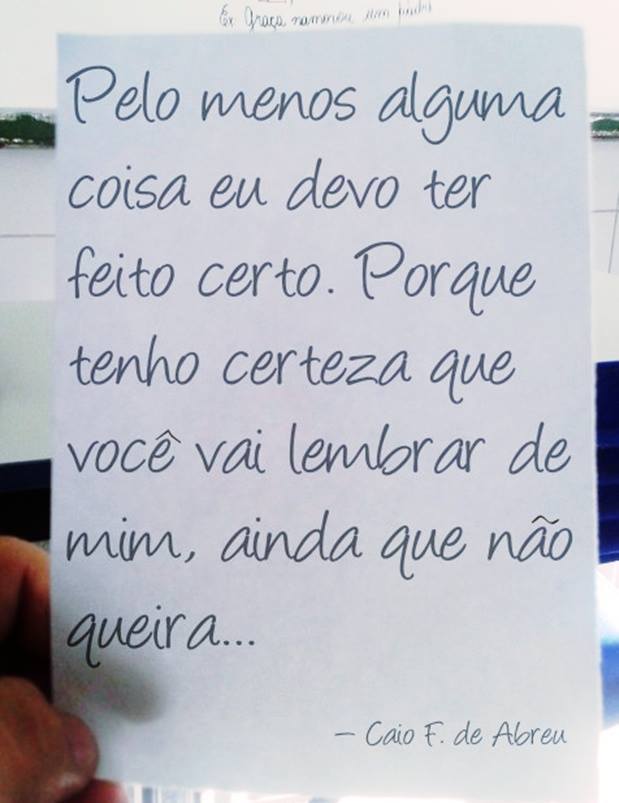 Ex Graça
Pelo menos alguma
coisa eu devo ter
feito certo. Porque
tenho certeza que
você vai lembrar de
mim, ainda que não
queira...
— Caio F. de Abreu